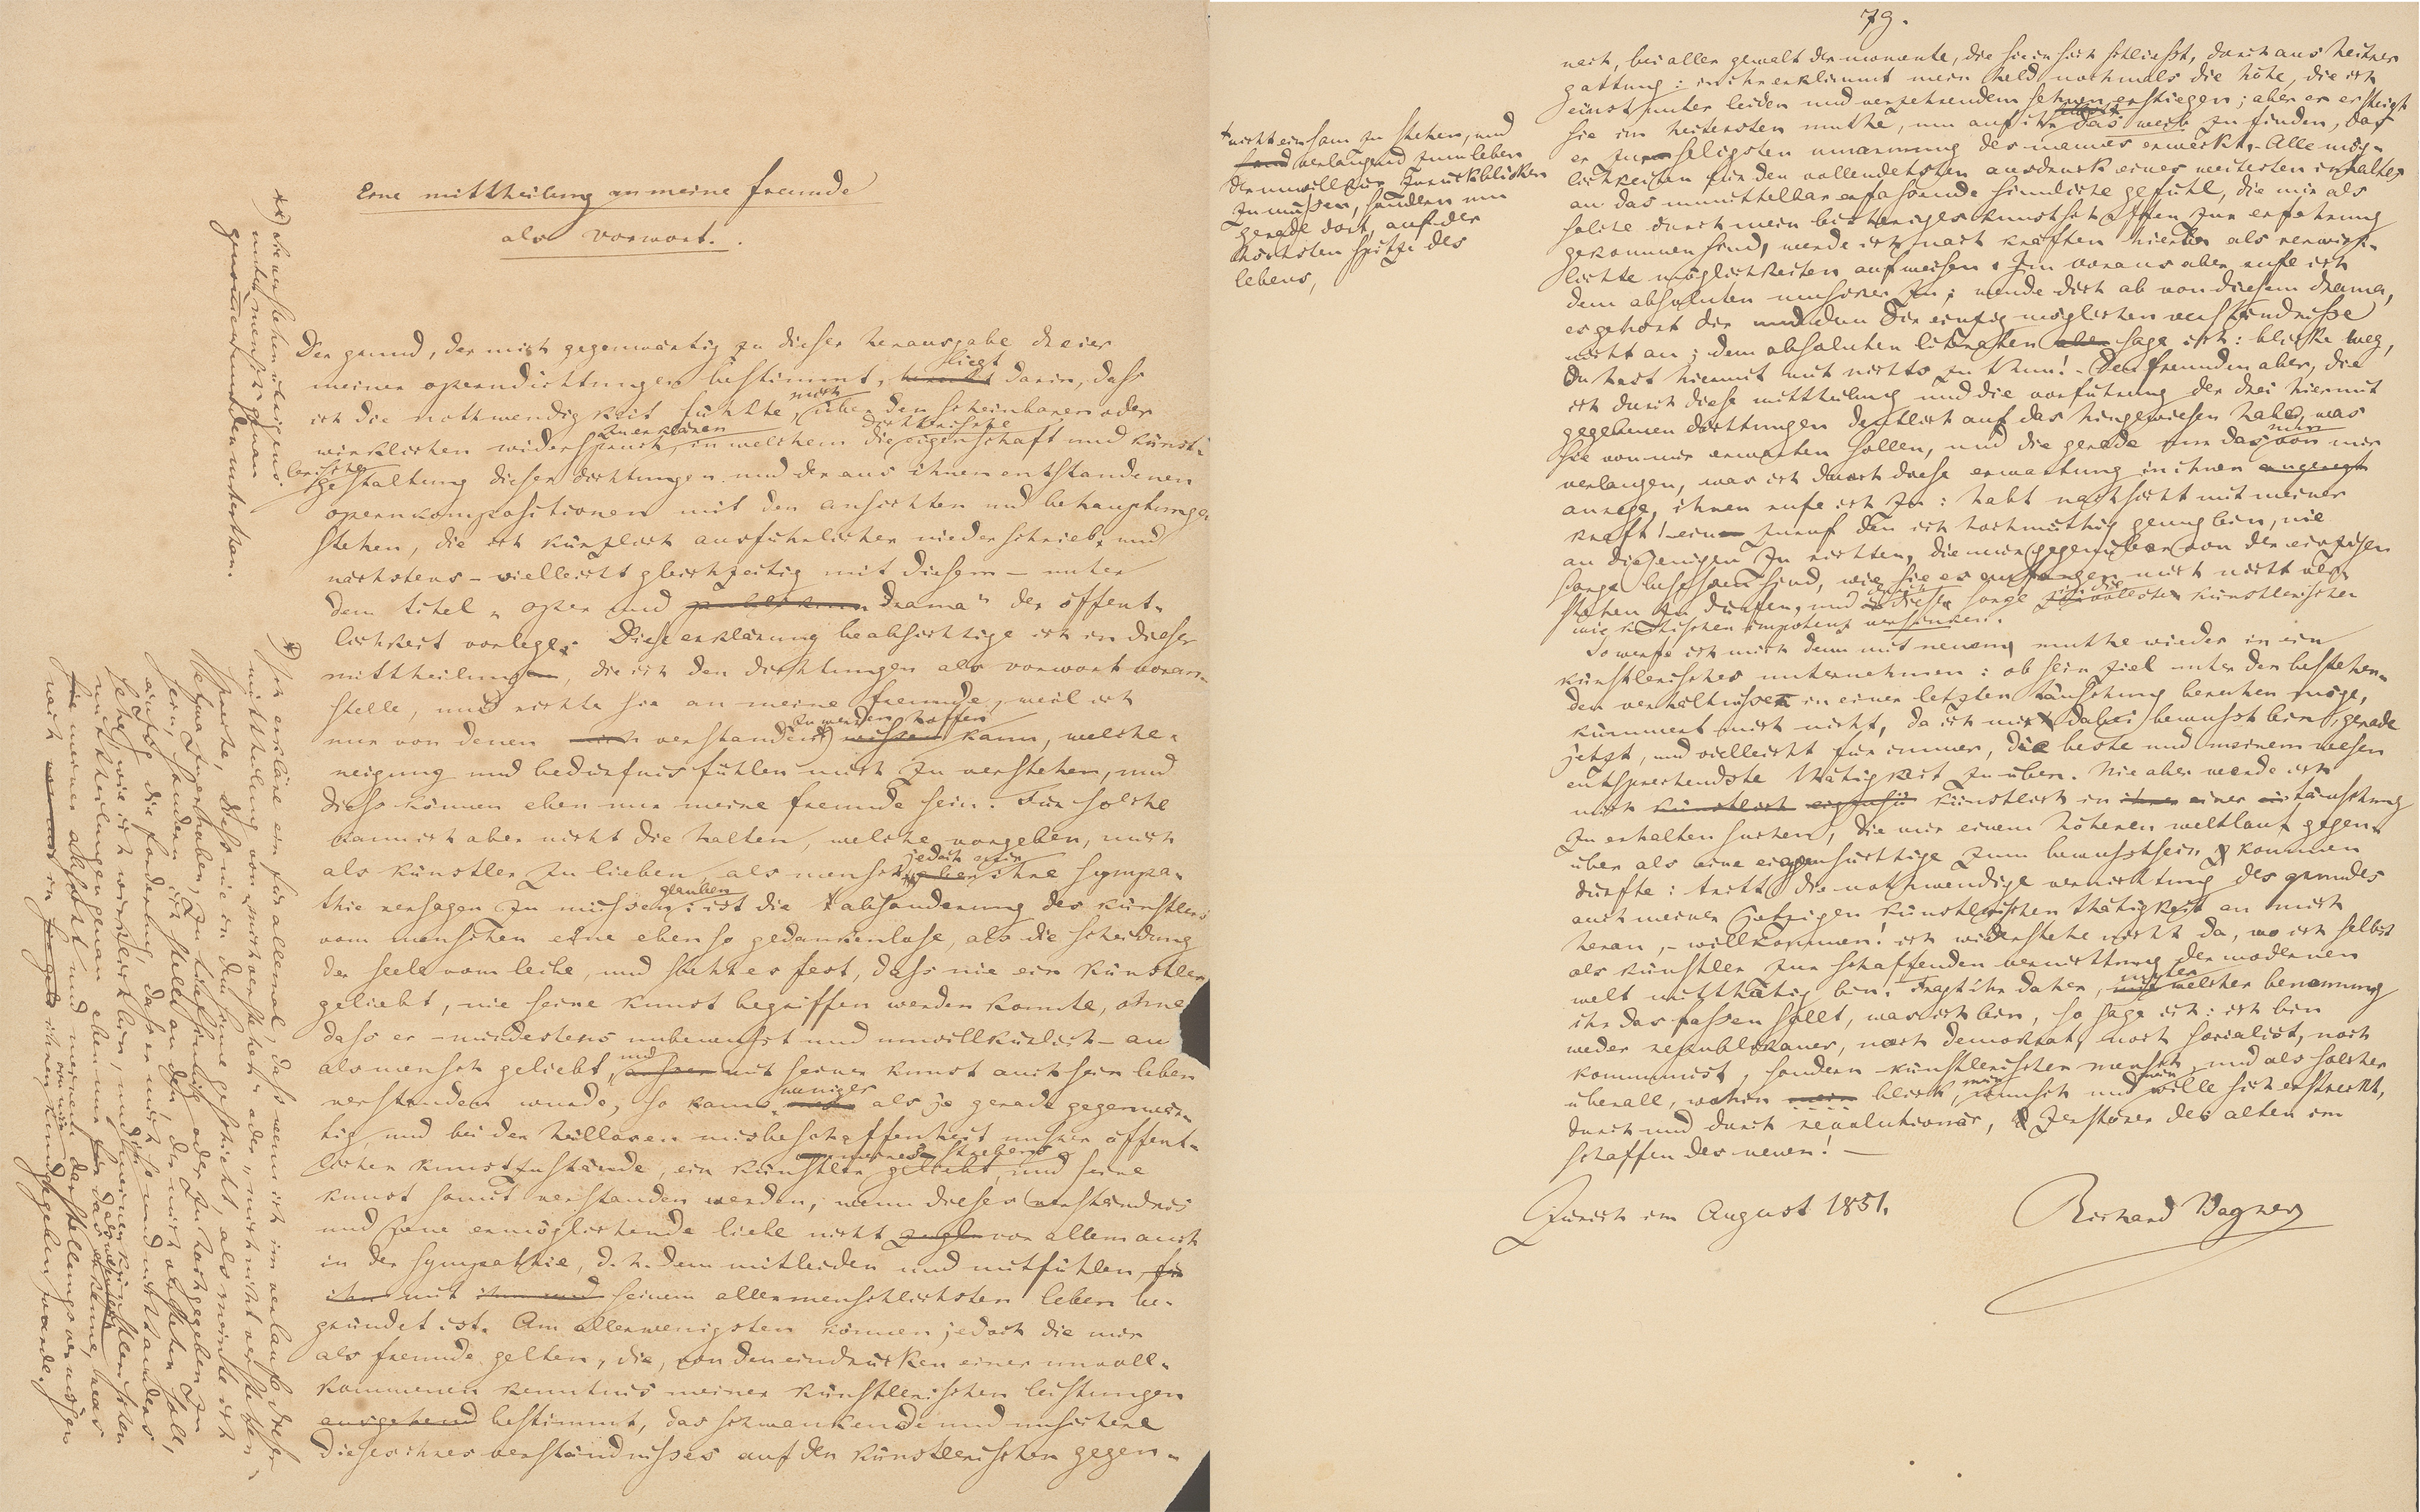 Eine mittheilung an meine freunde
als vorwort.
Der grund, der mich gegenwärtig zu dieser herausgabe dreier
liegt
meiner operndichtungen bestimmt, beruht darin, dass
mich
ich die nothwendigkeit fühlte, über den scheinbaren oder
zu erklären dichterische
wirklichen widerspruch, in welchem die eigenschaft und künst-
lerische
gestaltung dieser dichtungen und der aus ihnen entstandenen
opernkompositionen mit den ansichten und behauptungen
stehen, die ich kürzlich ausführlicher niederschrieb, und
nächstens – vielleicht gleichzeitig mit diesem – unter
dem titel „oper und drama“ der öffent-
lichkeit vorlege. Diese erklärung beabsichtige ich in dieser
mittheilung, die ich den dichtungen als vorwort voran-
stelle, und richte sie an meine freunde, weil ich
zu werden hoffen
nur von denen verstanden *) kann, welche
neigung und bedürfnis fühlen mich zu verstehen, und
diess können eben nur meine freunde sein. Für solche
kann ich aber nicht die halten, welche vorgeben, mich
jedoch mir
als künstler zu lieben, als mensch ihre sympa-
glauben
thie versagen zu müssen: ist die absonderung des künstlers
vom menschen eine ebenso gedankenlose, als die scheidung
der seele vom leibe, und steht es fest, dass nie ein künstler
geliebt, nie seine kunst begriffen werden konnte, ohne
dass er – mindestens unbewusst und unwillkürlich – auch
und
als mensch geliebt, mit seiner kunst auch sein leben
weniger
verstanden wurde, so kann als je gerade gegenwär-
tig, und bei der heillosen misbeschaffenheit unsrer öffent-
meines strebens
lichen kunstzustände, ein künstler geliebt, und seine
kunst somit verstanden werden, wenn dieses verständnis
und jene ermöglichende liebe nicht vor allem auch
in der sympathie, d. h. dem mitleiden und mitfühlen, für
ihn mit ihm und seinem allermenschlichsten leben be-
gründet ist. Am allerwenigsten können jedoch die mir
als freunde gelten, die, von den eindrücken einer unvoll-
kommenen kenntnis meiner künstlerischen leistungen
ausgehend bestimmt, das schwankende und unsichere
dieses ihres verständnisses auf den künstlerischen gegen-
*) Ich erkläre ein für allemal, dass wenn ich im verlaufe dieser
mittheilung von „mich verstehen“ oder „mich nicht verstehen“
spreche, dies nie in dem sinne geschieht, als meinte ich
etwa zu erhaben, zu tiefsinnig oder zu hochgegeben zu
sein, sondern ich stelle an den, der mich verstehen soll,
einzig die forderung, dass er mich so und nicht anders
sehe, wie ich wirklich bin, und in meinen künstlerischen
mittheilungen genau eben nur das als wesentlich erkenne, was
meiner absicht und meinem darstellungsvermögen
nach in ihnen von mir kundgegeben wurde.
79.
nach, bei aller gewalt der momente, die sie in sich schliesst, durchaus heitrer
gattung: in ihr erklimmt mein held nochmals die höhe, die ich
einst unter leiden und verzehrendem sehnen erstiegen; aber er ersteigt
sie im heitersten muthe, um auf ihr das weib zu finden, das
er zur seligsten umarmung des mannes erweckt. – Alle mög-
lichkeiten für den vollendetsten ausdruck eines weitesten inhaltes
an das unmittelbar erfassende sinnliche gefühl, die mir als
solche durch mein bisheriges kunstschaffen zur erfahrung
gekommen sind, werde ich nach kräften hierbei als verwirk-
lichte möglichkeiten aufweisen. Im voraus aber rufe ich
dem absoluten musiker zu: wende dich ab von diesem drama,
es gehört dir und dem dir einzig möglichen verständnisse
nicht an; dem absoluten literaten sage ich: blicke weg,
du hast hiermit mit nichts zu thun! – Den freunden aber, die
ich durch diese mittheilung und die vorführung der drei hiermit
gegebenen dichtungen deutlich auf das hingewiesen habe, was
nun
sie von mir erwarten sollen, und die gerade nur das von mir
verlangen, was ich durch diese erwartung in ihnen angeregt
anrege, ihnen rufe ich zu: habt nachsicht mit meiner
kraft! ein zuruf den ich hochmüthig genug bin, nie
an diejenigen zu richten, die mir gegenüber von der einzigen
sorge beseelt sind, wie sie es anfangen mich nicht ver-
stehen zu dürfen, und durch diese sorge in die vollste künstlerische
wie kritische impotenz versinken.
So werfe ich mich denn mit neuem muthe wieder in ein
künstlerisches unternehmen: ob sein ziel unter den bestehen-
den verhältnissen in einer letzten täuschung beruhen möge,
kümmert mich nicht, da ich mir dabei bewusst bin, gerade
jetzt, und vielleicht für immer, die beste und meinem wesen
entsprechendste thätigkeit zu üben. Nie aber werde ich
mich künstlich in einer täuschung
zu erhalten suchen, die mir einem höheren weltlauf gegen-
über als eine eigensüchtige zum bewusstsein kommen
dürfte: tritt die nothwendige vernichtung des grundes
auch meiner jetzigen künstlerischen thätigkeit an mich
heran, – willkommen! ich widerstehe nicht da, wo ich selbst
als künstler zur schaffenden vernichtung der modernen
unter
welt mitthätig bin. Fragt ihr daher, mit welcher benennung
ihr das fassen sollt, was ich bin, so sage ich: ich bin
weder republikaner, noch demokrat, noch socialist, noch
kommunist, sondern künstlerischer mensch, und als solcher
überall, wohin mein blick, mein wunsch und mein wille sich erstreckt,
durch und durch revolutionär, zerstörer des alten im
schaffen des neuen! –
Zürich im August 1851.
Richard Wagner
* nicht einsam zu stehen, und
verlangend zum leben
der unwillkür zurückblicken
zu müssen, sondern um
gerade dort, auf der
höchsten spitze des
lebens,